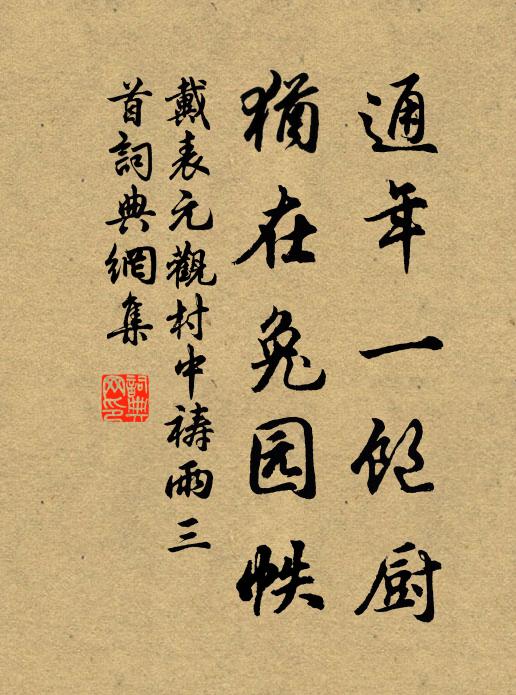 通年一飽厨
猶在兔园帙
戴表元觀村中禱雨三
首詞典網集
詞典网印